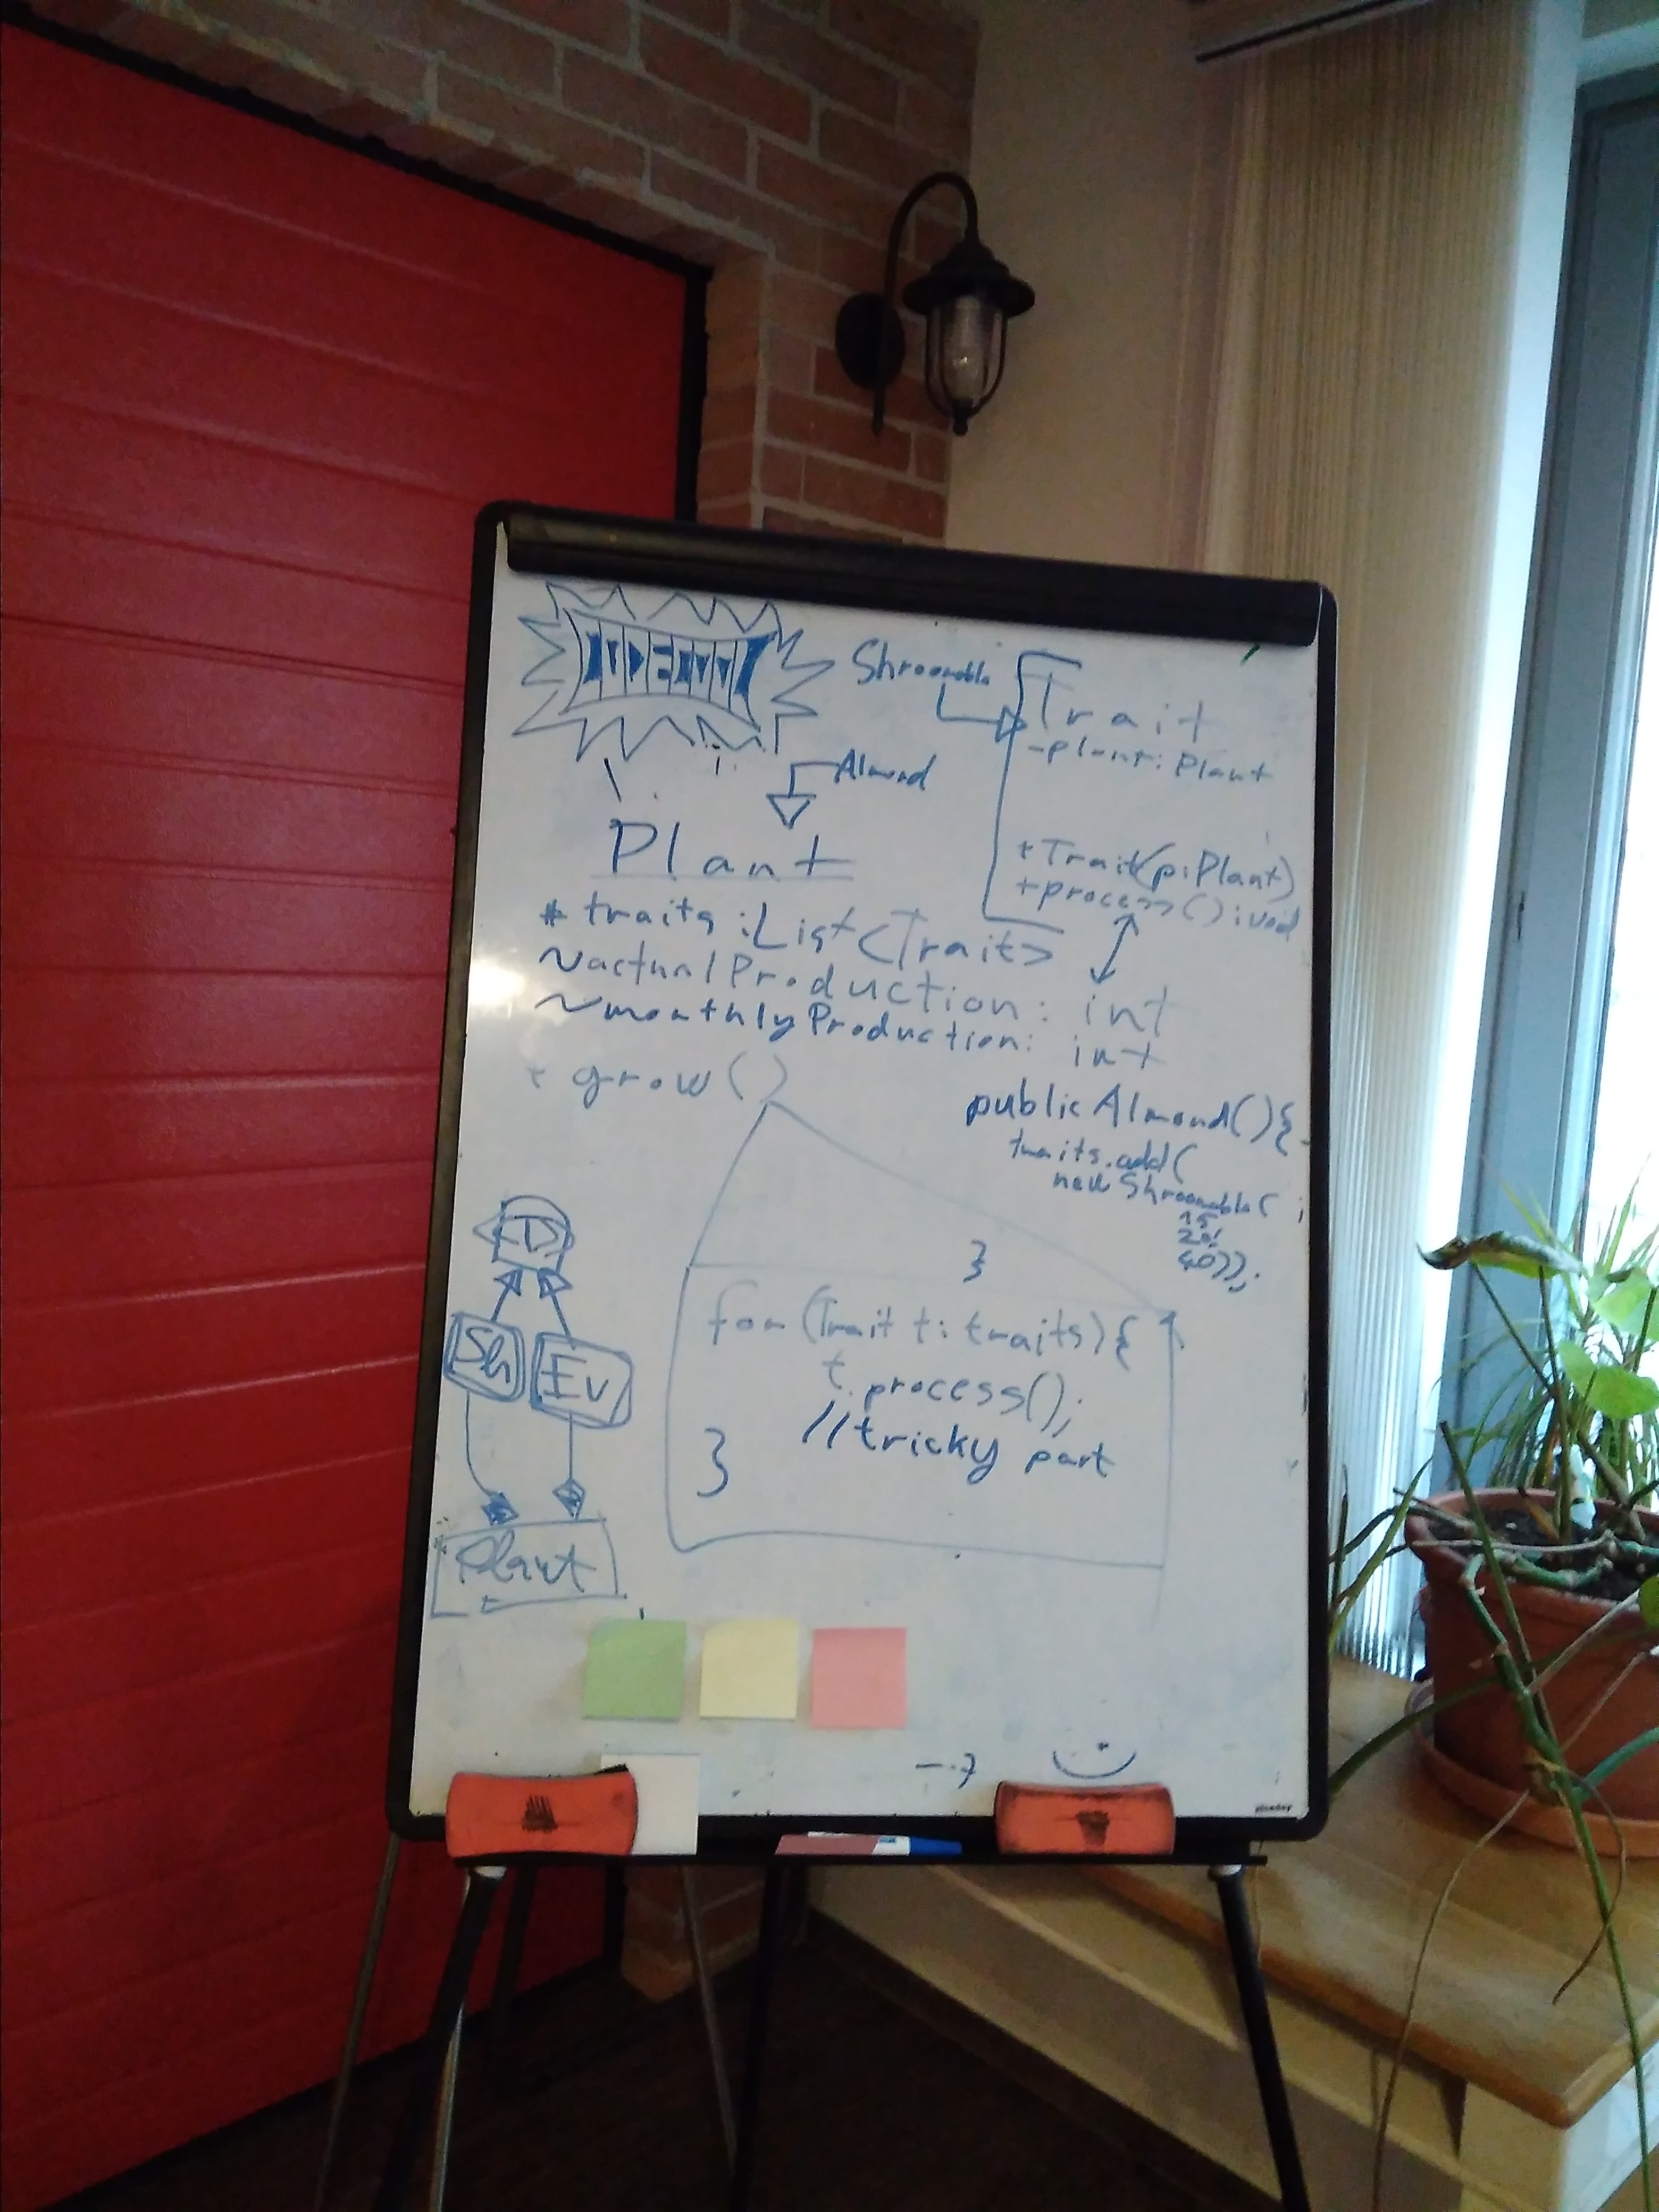 Shroomable
Trait
-plant: Plant
Almond
+Trait(p:Plant)
+process():void
Plant
# traits :List<Trait>
~actualProduction: int
~monthlyProduction: int
+ grow()
public Almond(){
traits.add(
new Shroomable(
15,
20,
40));
}
for (Trait t: traits){
t.process();
//tricky part
}
Sh
Ev
Plant